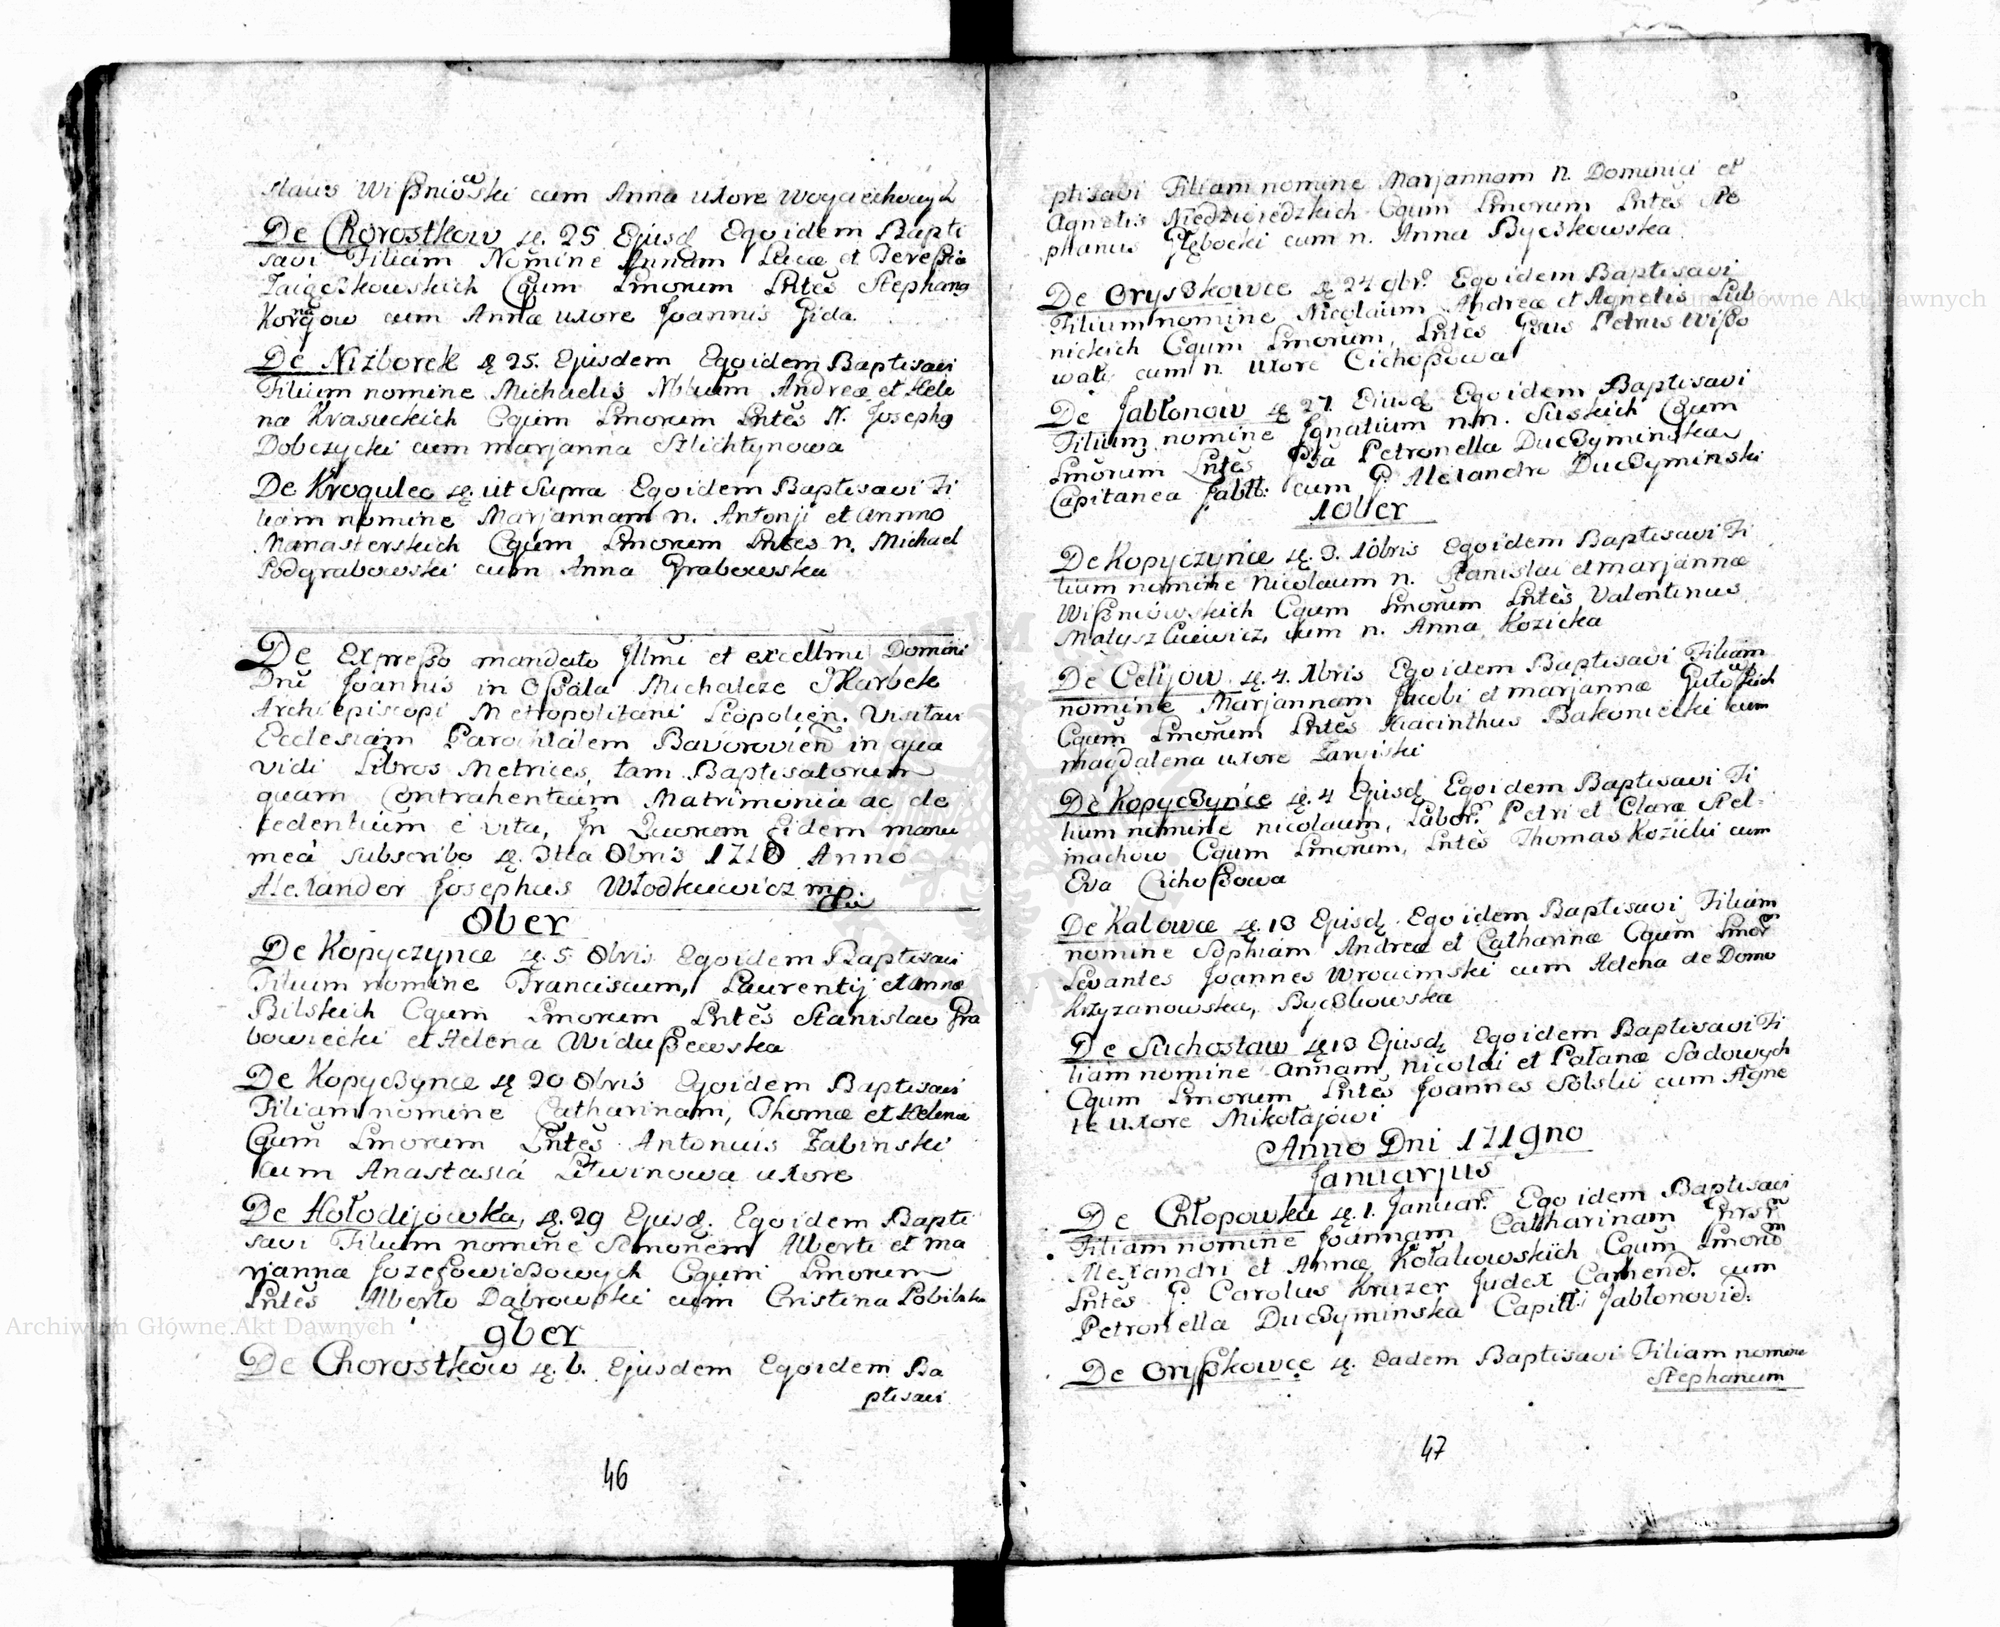 slaus Wißniowski cum Anna uxore Woyciechowych
De Chorostkow d. 25 Ejusd Egoidem Bapti
savi Filiam Nomine Annam Lucæ et Tereßiæ
Cgum Lmorum Lntes Stephang
cum Anna uxore Joannis Gida
De Niżborek d 25. Ejusdem Egoidem Baptisavi
Filium nomine Michaelis Andreæ et Hele
na Krasuckich Cgum Lmorum Lntes N. Josephg
Dobczycki cum marjanna Szlichtynowa
De Krogulec d. ut Supra Egoidem Baptisavi Fi
liam nomine Marjannam n. Antonji et Annno
Manasterskich Cgum Lmorum Lntes n. Michael
Podgrabowski cum Anna Grabowska
De Expreßo mandato Illmi et excellmi Domini
Dni Joannis in Oßala Michalcze Skarbek
Archiepiscopi Metropolitani Leopolien. Visitavi
Ecclesiam Parochialem Bavorovien in qua
vidi Libros Metrices, tam Baptisatorum
quam Contrahentium Matrimonia ac de
cedentium e vita, In Quorum fidem manu
mea subscribo d. 3tia 8bris 1718 Anno
Alexander Josephus Włodkiewicz mp.
8ber
De Kopyczynce d. 5 8bris Egoidem Baptisavi
Filium nomine Franciscum, Laurentij et Annæ
Bilskich Cgum Lmorum Lntes Stanislav Gra
bowiecki et Helena Widußewska
De Kopyczynce d 20 8bris Egoidem Baptisavi
Filiam nomine Catharinam, Thomæ et Helenæ
Cgum Lmorum Lntes Antonius Zabinski
cum Anastasia Litwinowa uxore
De Hołodijowka, d. 29 Ejusd. Egoidem Bapti
savi Filium nomine Simonem Alberti et ma
rjannæ Jozefowiczowych Cgum Lmorum
Lntes Alberto Dąbrowski cum Cristina
9ber
De Chorostkow d. 6. Ejusdem Egoidem Ba
ptisavi
46
ptisavi Filiam nomine Marjannam n. Dominici et
Agnetis Niedzwiedzkich Cgum Lmorum Lntes Ste
phanus Głębocki cum n. Anna Byczkowska
De Oryszkowce d 24 9br. Egoidem Baptisavi
Filium nomine Nicolaum Andreæ et Agnetis Lub
nickich Cgum Lmorum, Lntes Petrus Wißo
waty cum n. uxore Cichoßowa
De Jabłonow d 27. Ejusd Egoidem Baptisavi
Filium nomine Ignatium nm. Suskich Cgum
Lmorum Lntes Petronella Duczyminska
Capitanea Jabłł: cum P. Alexandro Duczyminski
10ber
De Kopyczynce d. 3. 10bris Egoidem Baptisavi Fi
lium nomine Nicolaum n. Stanislai et marjannæ
Wißniowskich Cgum Lmorum Lntes Valentinus
Matyszkiewicz, cum n. Anna Kozicka
De Celijow d. 4. Xbris Egoidem Baptisavi Filiam
nomine Marjannam Jacobi et marjannæ
Cgum Lmorum Lntes Hiacinthus Bakoniecki cum
magdalena uxore
De Kopyczynce d. 4 Ejusd Egoidem Baptisavi Fi
lium nomine nicolaum, Labor. Petri et Claræ Stel-
machow Cgum Lmorum, Lntes Thomas Kozicki cum
Eva Cichoßowa
De Kalowce d. 13 Ejusd. Egoidem Baptisavi Filiam
nomine Sophiam Andreæ et Catharinæ Cgum Lmor
Levantes Joannes Wrocimski cum Helena de Domo
Krzyzanowska, Byczkowska
De Suchostaw d 13 Ejusd Egoidem Baptisavi Fi
liam nomine Annam, Nicolai et Sadowych
Cgum Lmorum Lntes Joannes Solski cum Agne
te uxore Mikołajowi
Anno Dni 1719no
Januarjus
De Chłopowka d. 1. Januar. Ego idem Baptisavi
Filiam nomine Joannam Catharinam
Alexandri et Annæ Kołakowskich Cgum Lmor
Lntes P. Carolus Kruzer Judex Camened. cum
Petronella Duczyminska Capitt: Jabłonovied.
De Oryßkowce d. Eadem Baptisavi Filiam nomine
Stephanum
47
Archiwum Główne Akt Dawnych
Archiwum Główne Akt Dawnych